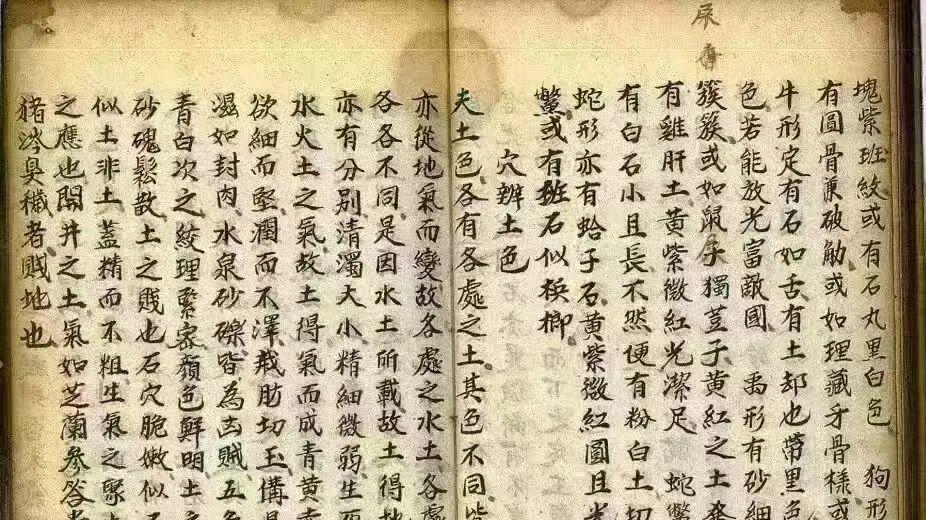 塊紫班紋或有石丸里白色 狗形
有圓骨廉破觔或如理藏牙骨樣
牛形定有石如舌有土却也帶里色
色若能放光富敵國 禹形有砂細
簇簇或如鼠牙獨荳子黃紅之土
有雞肝土黃紫微紅光潔足 蛇
有白石小且長不然便有粉白土切
蛇形亦有蛤子石黃紫微紅圓且
鱉或有班石似梹榔
穴辨土色
夫土色各有各處之土其色不同皆
亦從地氣而變故各處之水土各處
各各不同是因水土所載故土得地
亦有分別清濁大小精細微弱生死
水火土之氣故土得氣而成青黃
欲細而堅潤而不澤裁肪切玉備具
濕如封肉水泉砂礫皆為凶賊五色
青白次之絞理緊密顏色鮮明土之
砂磈鬆散土之賤也石穴脆嫩似石
似土非土蓋精而不粗生氣之聚
之應也開井之土氣如芝蘭參苓
猪涔臭穢者賤地也